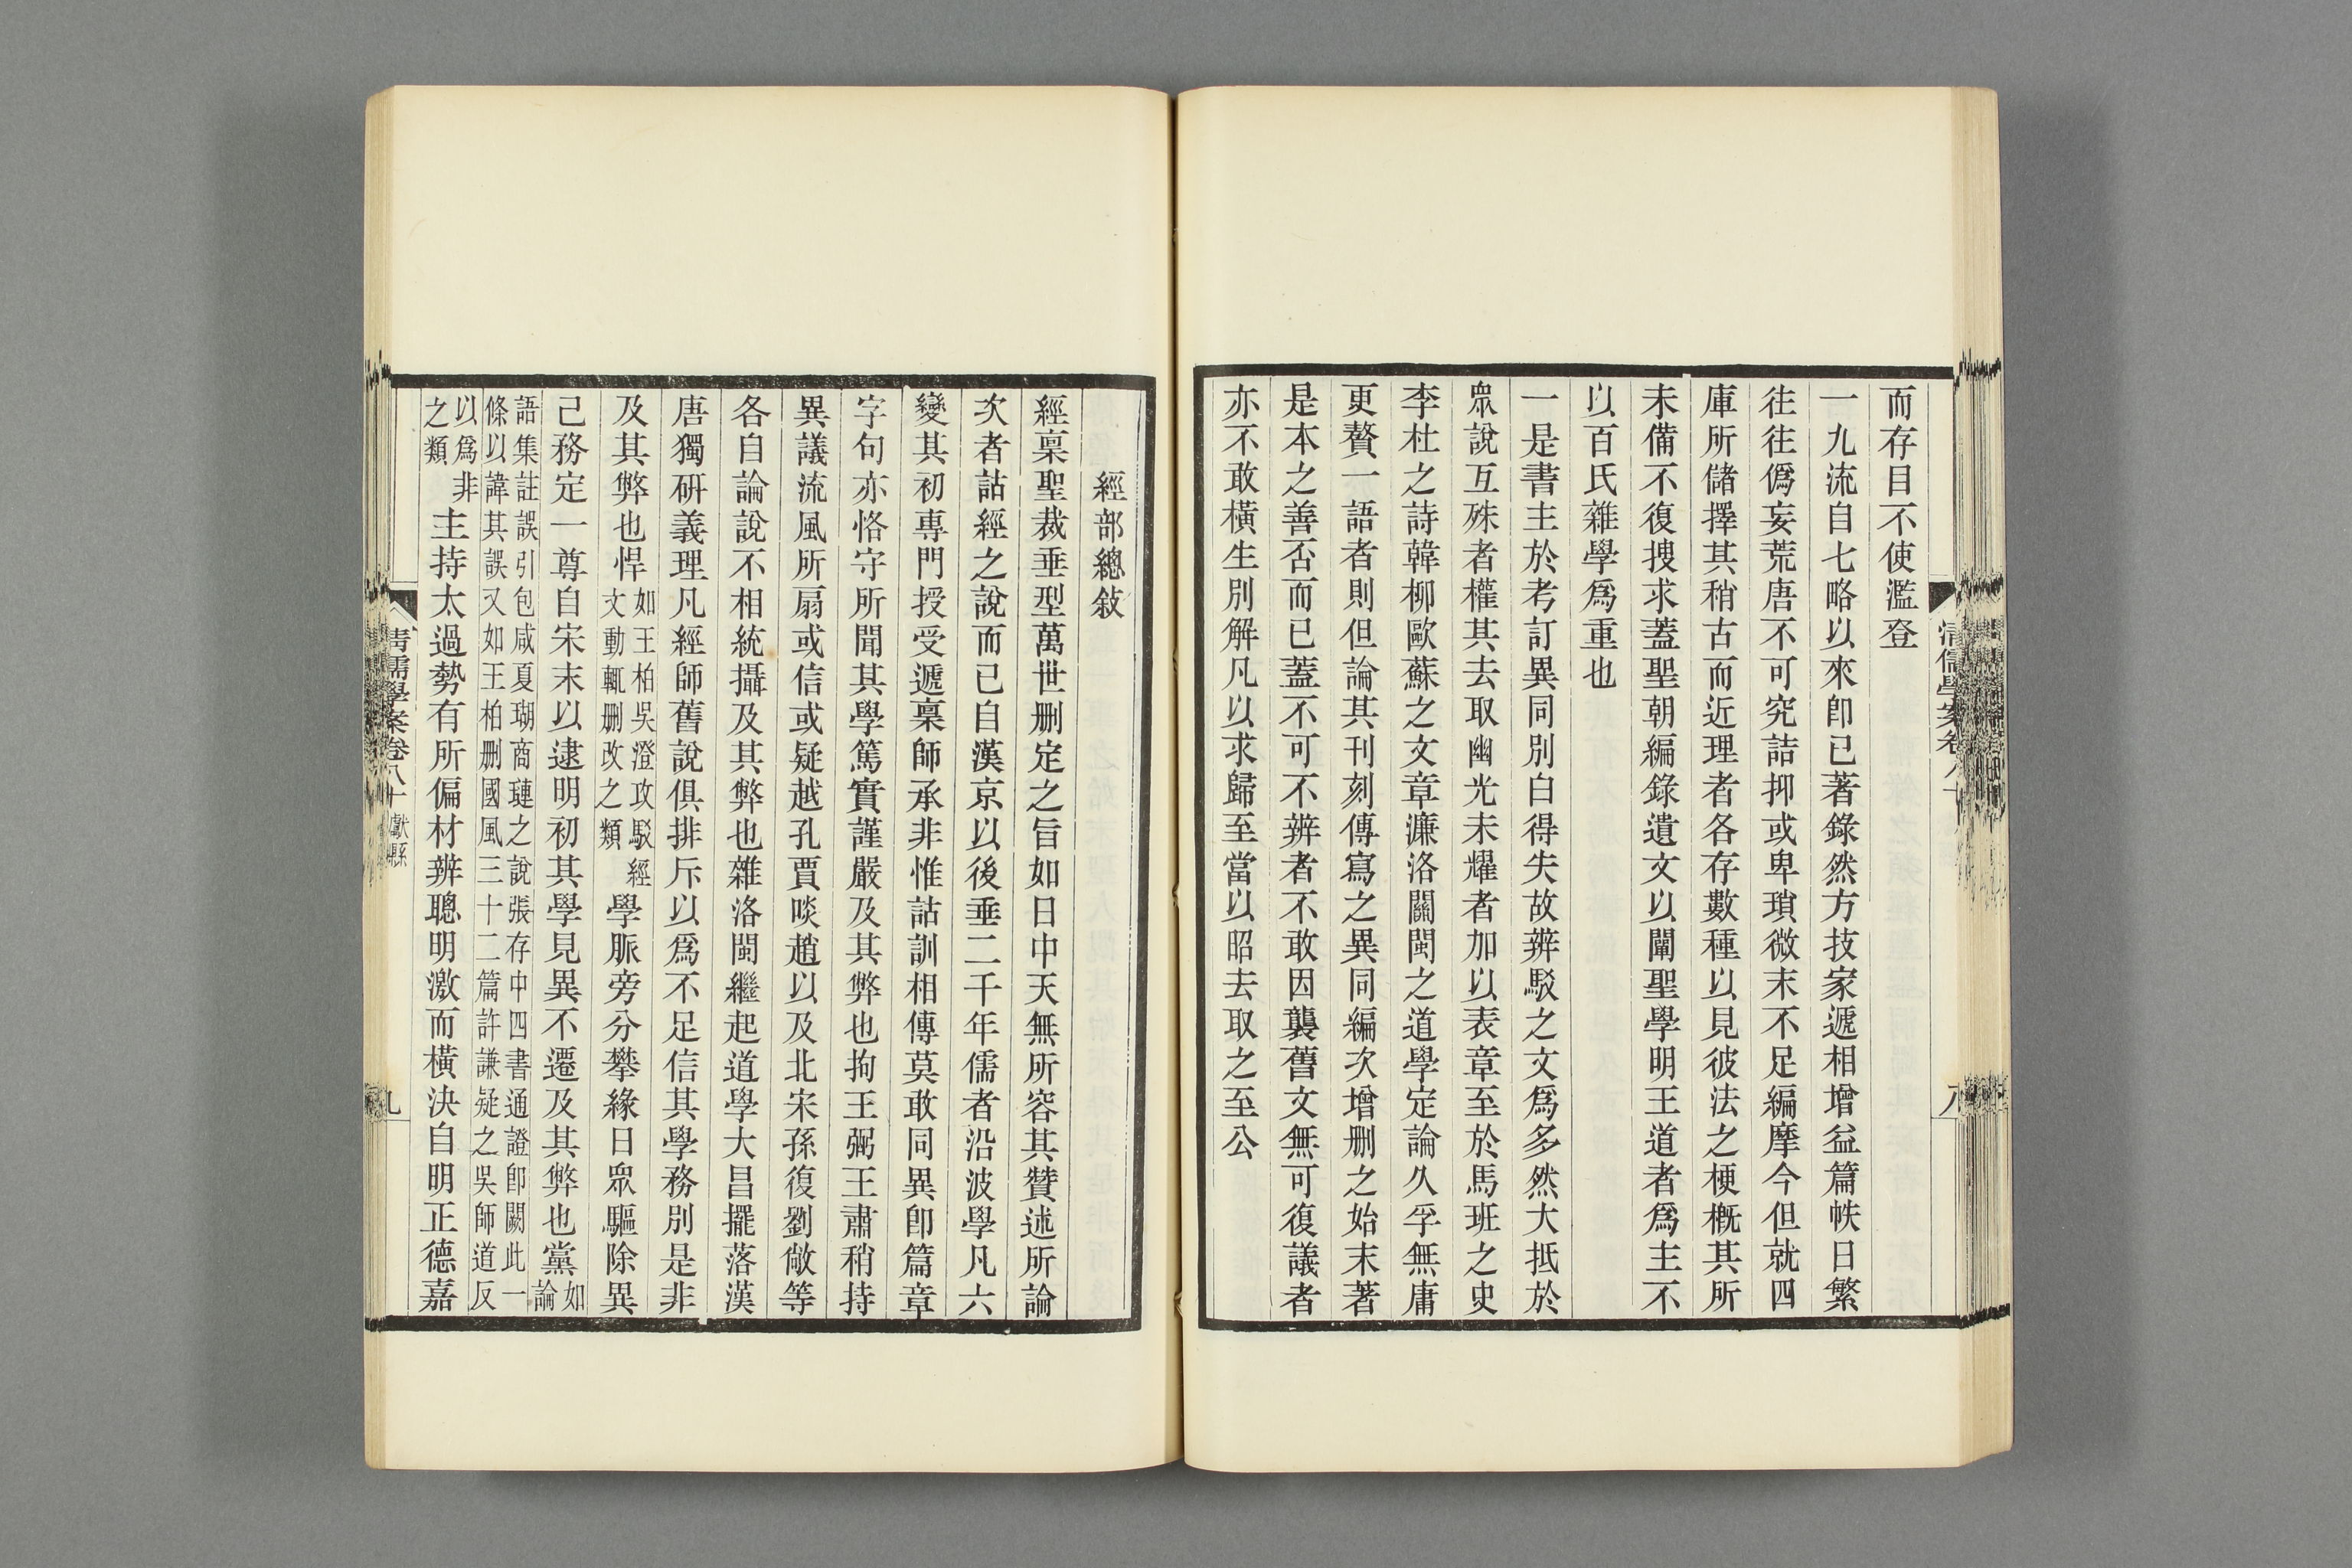 而存目不使濫登
一九流自七略以來卽已著錄然方技家遞相增益篇帙日繁
往往僞妄荒唐不可究詰抑或卑瑣微末不足編摩今但就四
庫所儲擇其稍古而近理者各存數種以見彼法之梗槪其所
未備不復搜求蓋聖朝編錄遺文以闡聖學明王道者爲主不
以百氏雜學爲重也
一是書主於考訂異同別白得失故辨駁之文爲多然大抵於
衆說互殊者權其去取幽光未耀者加以表章至於馬班之史
李杜之詩韓柳歐蘇之文章濂洛關閩之道學定論久孚無庸
更贅一語者則但論其刊刻傳寫之異同編次增刪之始末著
是本之善否而已蓋不可不辨者不敢因襲舊文無可復議者
亦不敢橫生別解凡以求歸至當以昭去取之至公
清儒學案卷八十
八
經部總敍
經稟聖裁垂型萬世刪定之旨如日中天無所容其贊述所論
次者詁經之說而已自漢京以後垂二千年儒者沿波學凡六
變其初專門授受遞稟師承非惟詁訓相傳莫敢同異卽篇章
字句亦恪守所聞其學篤實謹嚴及其弊也拘王弼王肅稍持
異議流風所扇或信或疑越孔賈啖趙以及北宋孫復劉敞等
各自論說不相統攝及其弊也雜洛閩繼起道學大昌擺落漢
唐獨研義理凡經師舊說俱排斥以爲不足信其學務別是非
及其弊也悍如王柏吳澄攻駁經文動輒刪改之類學脈旁分攀緣日衆驅除異
己務定一尊自宋末以逮明初其學見異不遷及其弊也黨如論
語集註誤引包咸夏瑚商璉之說張存中四書通證卽闕此一
條以諱其誤又如王柏刪國風三十二篇許謙疑之吳師道反
以爲非之類主持太過勢有所偏材辨聰明激而橫決自明正德嘉
清儒學案卷八十 獻縣
九